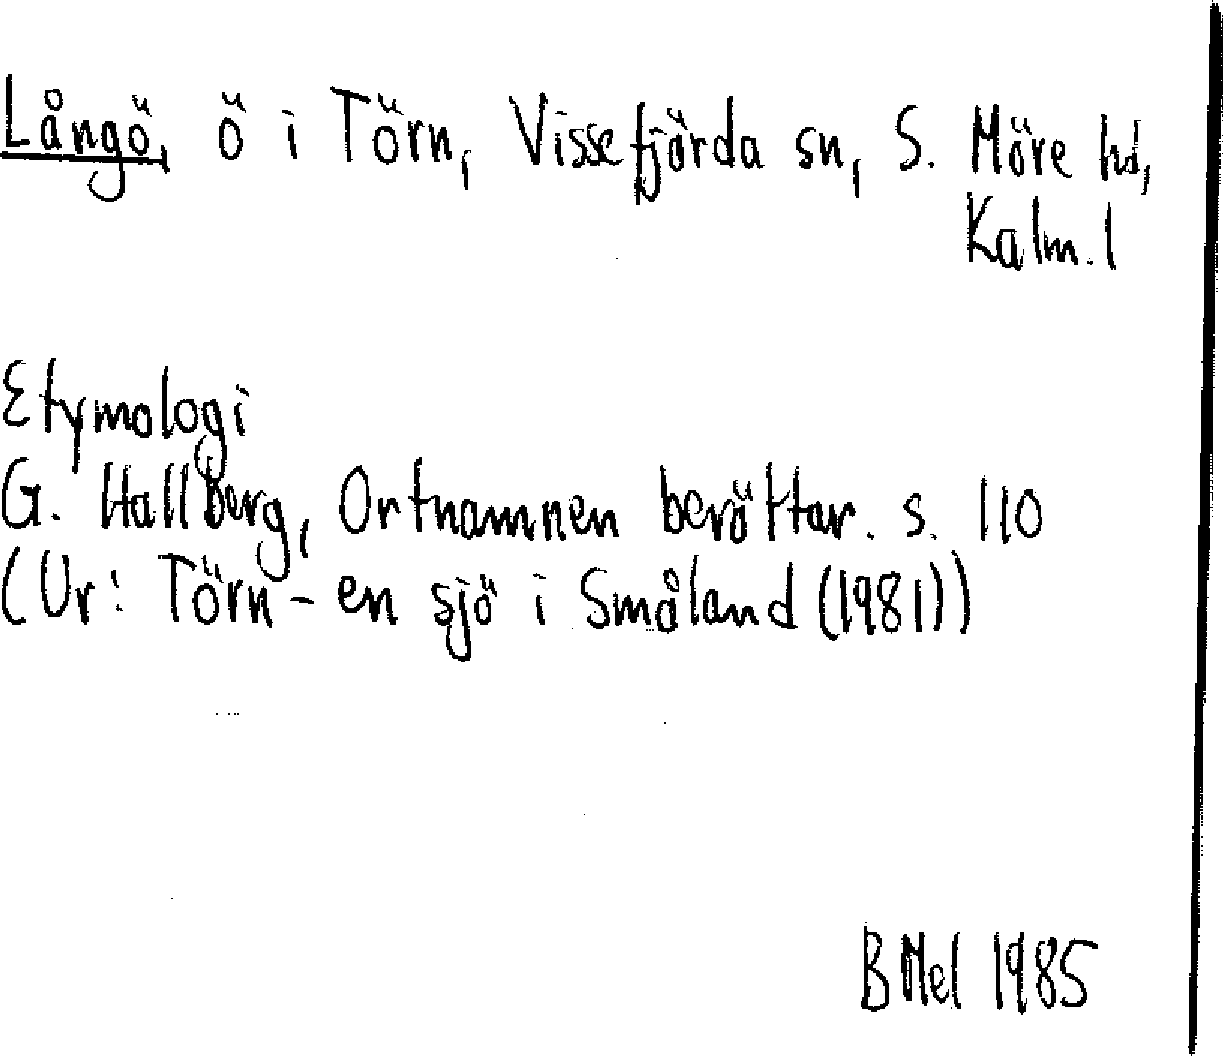 Långö, ö i Törn, Vissefjärda sn, S. Möre hd,
Kalm. l
Etymologi
G. Hallberg, Ortnamnen berättar. s. 110
(Ur: Törn - en sjö i Småland (1981))
B Mel 1985